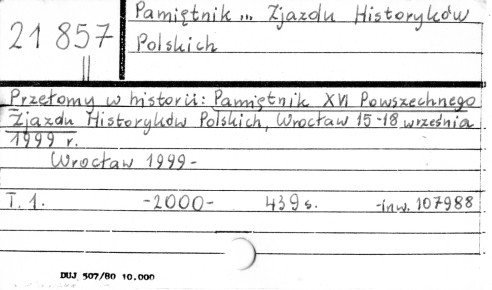 21 857
Pamiętnik ... Zjazdu Historyków
Polskich
Przełomy w historii: Pamiętnik XVI Powszechnego
Zjazdu Historyków Polskich, Wrocław 15-18 września
1999 r.
Wrocław 1999-
T. 1. -2000- 439 s. -inw. 107988
DUJ 507/80 10.000